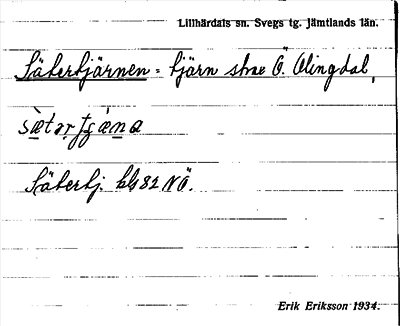 Lillhärdals sn. Svegs tg. Jämtlands län.
Säterbjärnen = tjärn strax Ö. Olingdal,
sætərtjæ̀na
Säterbj. blg 82 NÖ.
Erik Eriksson 1934.